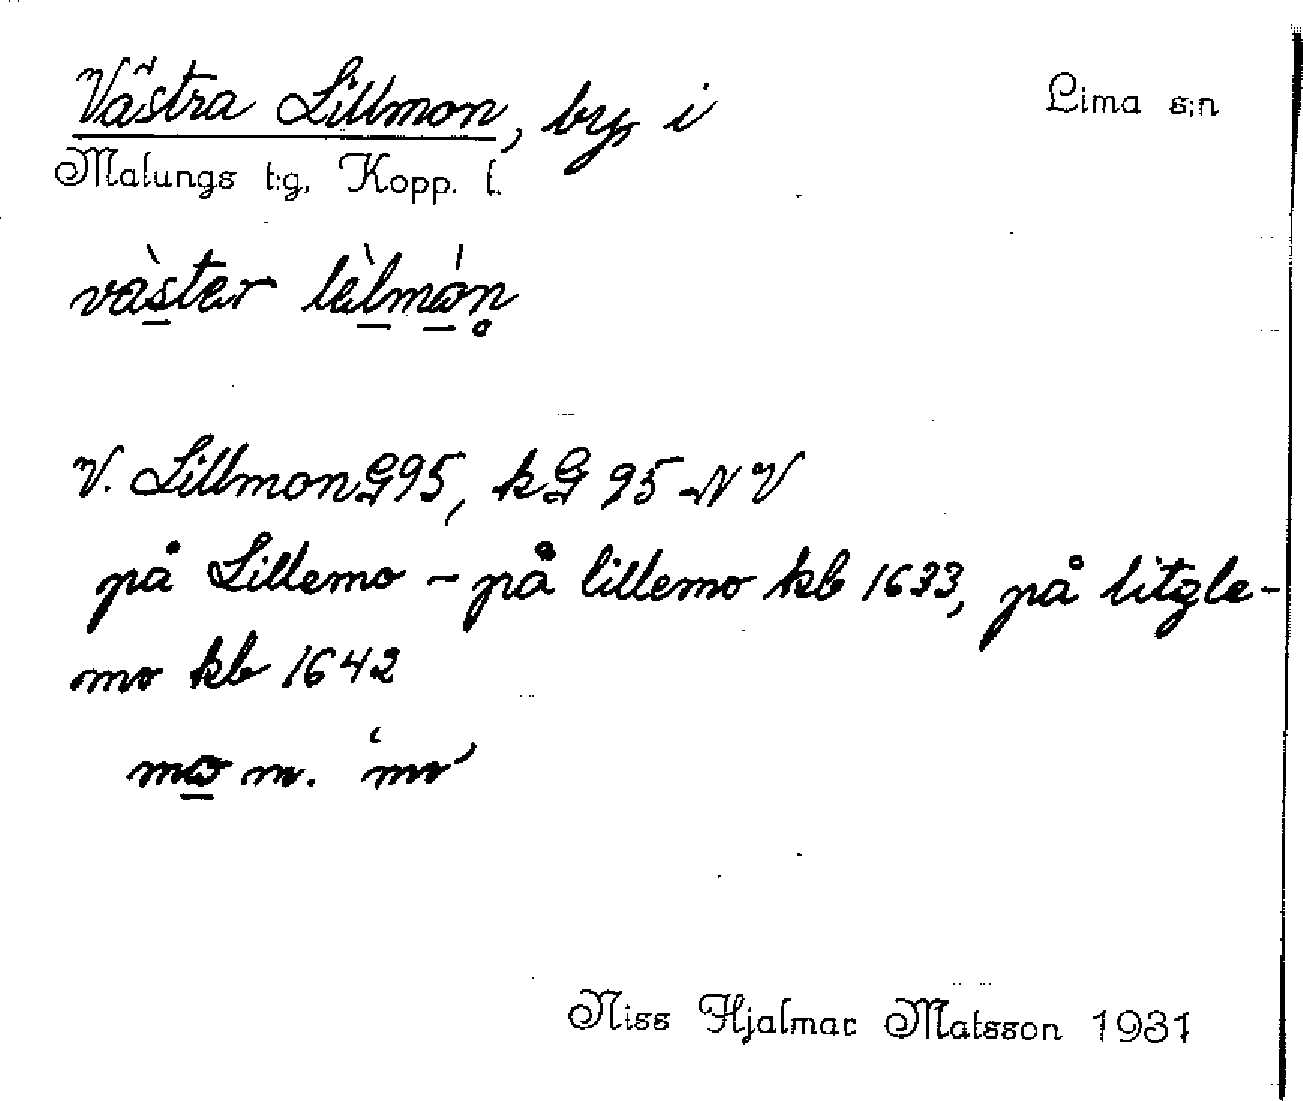 Västra Lillmon, by i Lima s:n
Malungs t:g, Kopp. l.
väster lilmòn
V. Lillmon G95, k G 95 NV
på Lillemo – på lillemo kb 1633, på litzle-
mo kb 1642
mo m. mo
Niss Hjalmar Matsson 1931